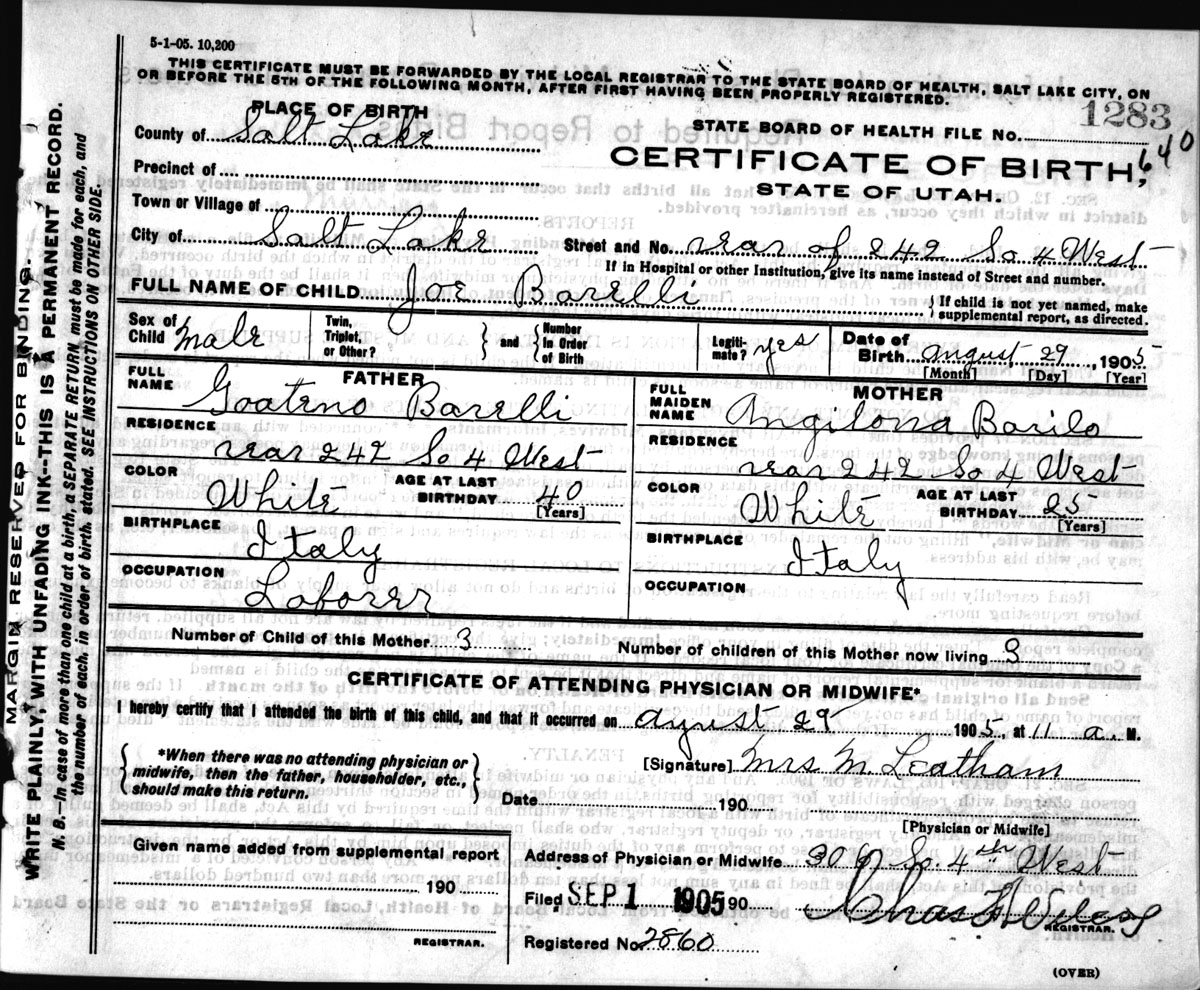 5-1-05. 10,200
THIS CERTIFICATE MUST BE FORWARDED BY THE LOCAL REGISTRAR TO THE STATE BOARD OF HEALTH, SALT LAKE CITY, ON
OR BEFORE THE 5TH OF THE FOLLOWING MONTH, AFTER FIRST HAVING BEEN PROPERLY REGISTERED.
PLACE OF BIRTH
STATE BOARD OF HEALTH FILE No. 1283
County of Salt Lake
CERTIFICATE OF BIRTH, 640
Precinct of
STATE OF UTAH.
Town or Village of
City of Salt Lake Street and No. rear of 242 So 4 West
If in Hospital or other Institution, give its name instead of Street and number.
FULL NAME OF CHILD Joe Barelli { If child is not yet named, make supplemental report, as directed.
Sex of Child Male Twin, Triplet, or Other? } and { Number in Order of Birth Legitimate? yes Date of Birth August 29, 1905
[Month] [Day] [Year]
FATHER
FULL NAME Goateno Barelli
RESIDENCE
rear 242 So 4 West
COLOR White AGE AT LAST BIRTHDAY 40
[Years]
BIRTHPLACE
Italy
OCCUPATION
Laborer
MOTHER
FULL MAIDEN NAME Angilona Barilo
RESIDENCE
rear 242 So 4 West
COLOR White AGE AT LAST BIRTHDAY 25
[Years]
BIRTHPLACE
Italy
OCCUPATION
Number of Child of this Mother 3 Number of children of this Mother now living 3
CERTIFICATE OF ATTENDING PHYSICIAN OR MIDWIFE*
I hereby certify that I attended the birth of this child, and that it occurred on August 29 1905, at 11 a. M.
{ *When there was no attending physician or
midwife, then the father, householder, etc.,
should make this return. }
[Signature] Mrs M Leatham
Date 190
[Physician or Midwife]
Given name added from supplemental report
190
REGISTRAR.
Address of Physician or Midwife So. 4th West
Filed SEP 1 1905 90
REGISTRAR.
Registered No 2860
(OVER)
MARGIN RESERVED FOR BINDING.
WRITE PLAINLY, WITH UNFADING INK--THIS IS A PERMANENT RECORD.
N. B.—In case of more than one child at a birth, a SEPARATE RETURN must be made for each, and
the number of each, in order of birth, stated. SEE INSTRUCTIONS ON OTHER SIDE.